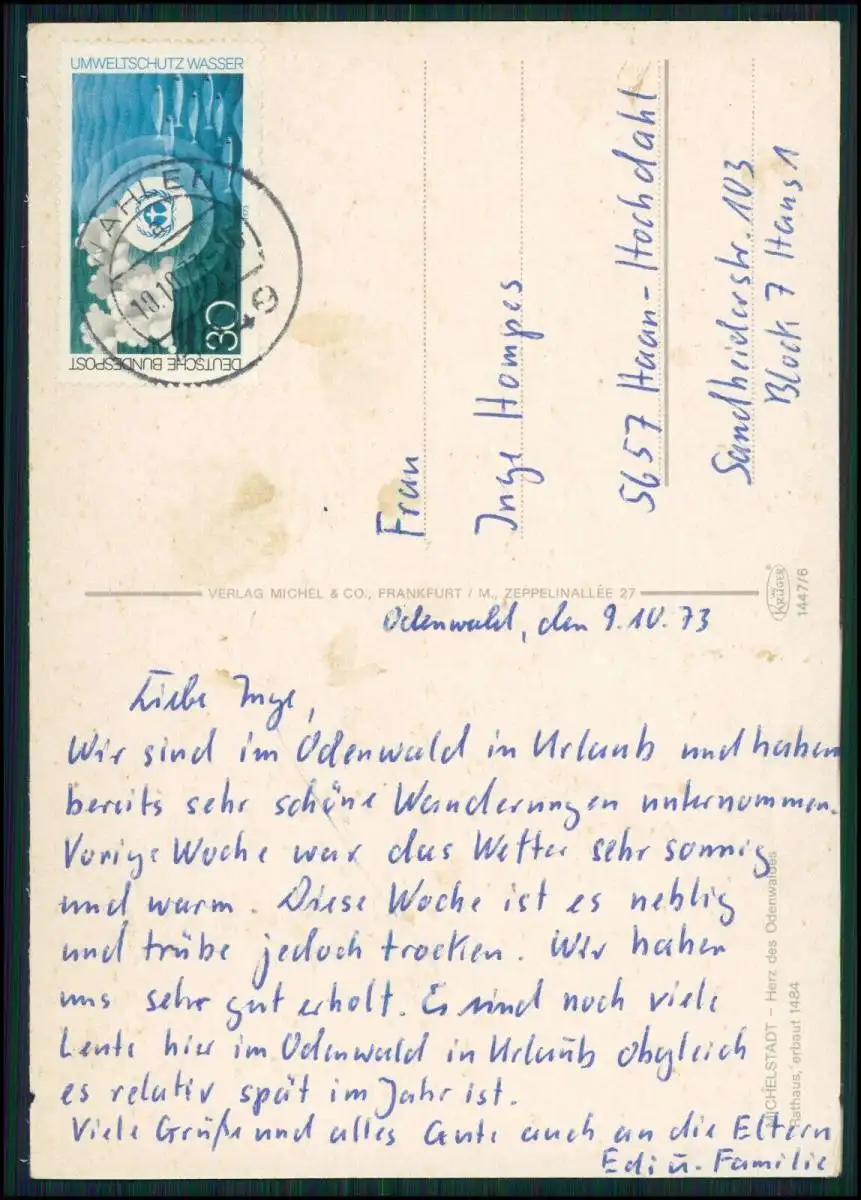 UMWELTSCHUTZ WASSER
WAHLEN
10.10.73
30
DEUTSCHE BUNDESPOST
Frau
Inge Hompes
5657 Haan-Hochdahl
Sandheiderstr. 103
Block 7 Haus 1
VERLAG MICHEL & CO., FRANKFURT / M., ZEPPELINALLÉE 27
KRÜGER
1447/6
Odenwald, den 9.10.73
Liebe Inge,
Wir sind im Odenwald in Urlaub und haben
bereits sehr schöne Wanderungen unternommen.
Vorige Woche war das Wetter sehr sonnig
und warm. Diese Woche ist es neblig
und trübe jedoch trocken. Wir haben
uns sehr gut erholt. Es sind noch viele
Leute hier im Odenwald in Urlaub obgleich
es relativ spät im Jahr ist.
Viele Grüße und alles Gute auch an die Eltern
Edi u. Familie
MICHELSTADT – Herz des Odenwaldes
Rathaus, erbaut 1484